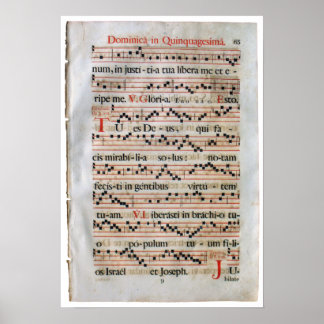 Dominica in Quinquagesima. 65
num, in justi-ti-a tua libera me et e-
ripe me. V. Glori-a. Esto.
TU es De-us, qui fa-
cis mirabi-li-a solus: notam
fecis-ti in gentibus virtu-tem
tu-am. V.I. liberasti in brachi-o tu-
o populum tu-um fi-li-
os Israel et Joseph. JU
9 bilate